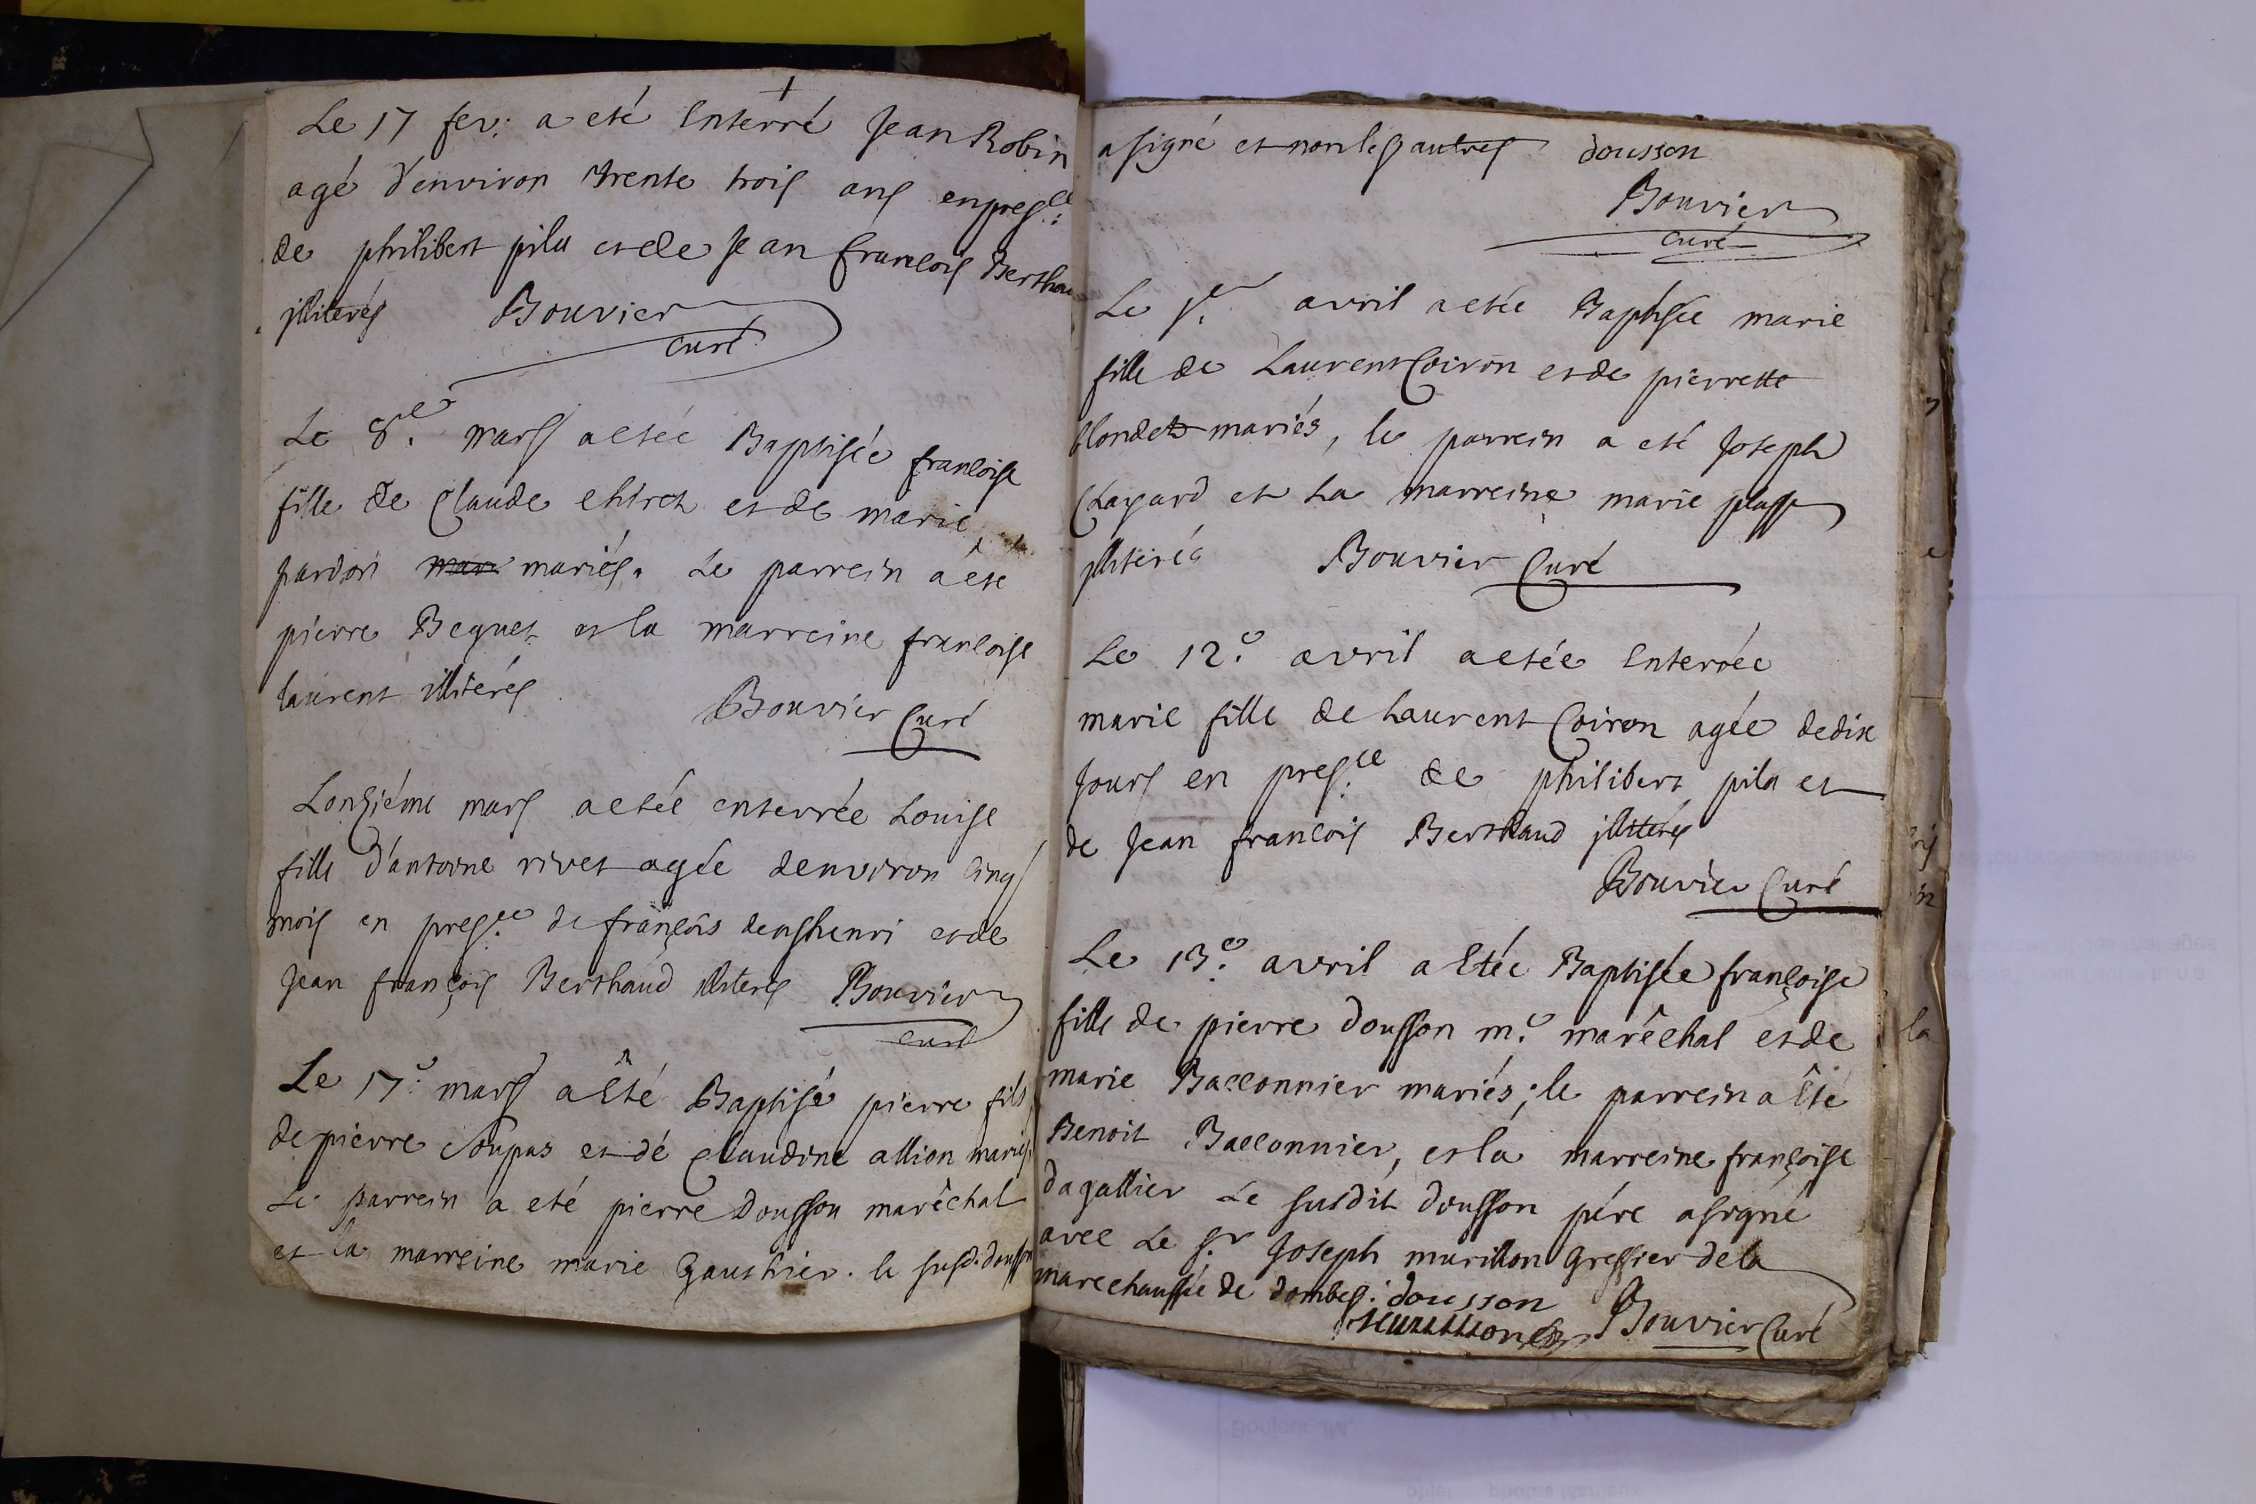 Le 17 fev: a eté Enterré Jean Robin
agé d'environ trente trois ans en presce:
de philibert pila et de Jean francois Berthau
illiterés Bouvier
curé
Le 8e. mars a etée Baptisée francoise
fille de Claude chiret et de marie
pardon mar mariés. Le parrein a eté
pierre Bequet et la marreine francoise
laurent illiterés
Bouvier Curé
Lonziéme mars a etée enterrée Louise
fille d'antoine rivet agée denviron cinq
mois en presce. de françois denshenri et de
Jean françois Berthaud illiterés Bouvier
curé
Le 17e. mars a Eté Baptisé pierre fils
de pierre Coupas et de Claudine allion mariés.
Le parrein a eté pierre Dousson marêchal
et la marreine marie Gauthier. le susd. dousson
a signé et non les autres dousson
Bouvier
curé
Le 1er. avril a etée Baptisée marie
fille de Laurent Coiron et de pierrette
blondet mariés, le parrein a eté Joseph
Chayard et La marreine marie plasse
illiterés Bouvier Curé
Le 12e. avril a etée Enterrée
marie fille de Laurent Coiron agée de dix
Jours en presce. de philibert pila et
de Jean francois Berthaud illiterés
Bouvier Curé
Le 13e. avril a Etée Baptisée françoise
fille de pierre dousson me. marêchal et de
marie Bacconnier mariés; le parrein a Eté
Benoit Bacconnier, et la marreine françoise
dagallier Le susdit dousson pére a signé
avec Le sr. Joseph murillon Greffier de la
marechaussée de dombes. dousson
Murillion Bouvier Curé